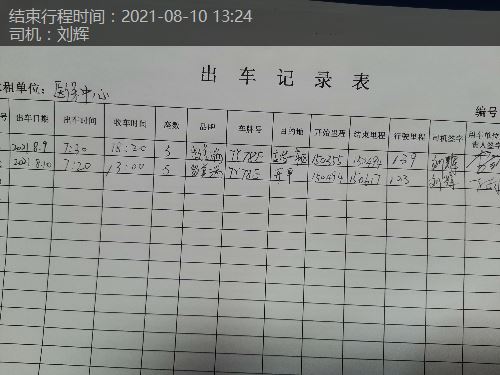 结束行程时间：2021-08-10 13:24
司机：刘辉
出车记录表
租单位：医保中心
编号
号 出车日期 出车时间 收车时间 座数 品牌 车牌号 目的地 开始里程 结束里程 行驶里程 司机签字 用车单位
责人签字
2021.8.9 7:30 18:20 5 TY785 150355 150494 139
2021.8.10 7:20 13:00 5 TY785 150494 150617 123